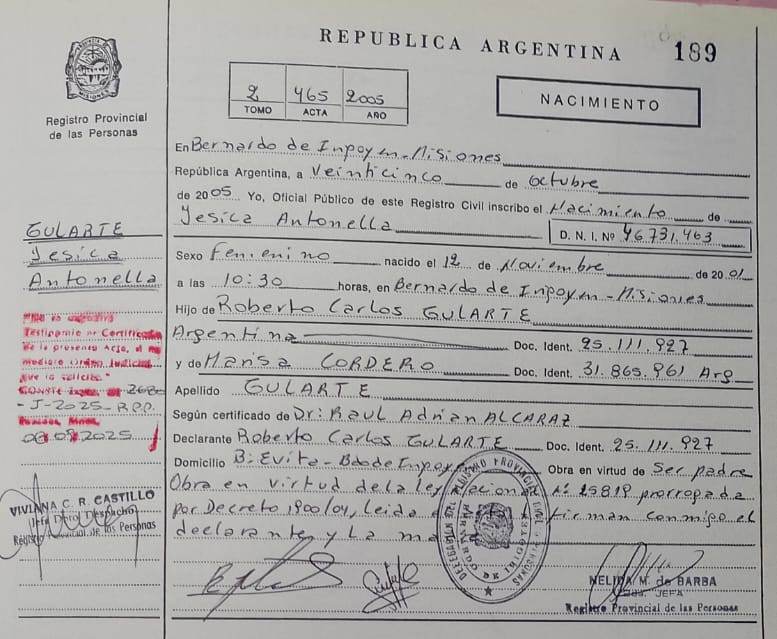 REPUBLICA ARGENTINA
189
Registro Provincial
de las Personas
2 465 2005
TOMO ACTA AÑO
NACIMIENTO
En Bernardo de Irigoyen - Misiones
República Argentina, a Veinticinco de Octubre
de 2005 Yo, Oficial Público de este Registro Civil inscribo el Nacimiento de
Yesica Antonella
D. N. I. Nº 46731.463
Sexo Femenino nacido el 12 de Noviembre de 2001
a las 10:30 horas, en Bernardo de Irigoyen - Misiones
Hijo de Roberto Carlos GULARTE
Argentina Doc. Ident. 25.111.927
y de Marisa CORDERO Doc. Ident. 31.865.961 Arg
Apellido GULARTE
Según certificado de Dr: RAUL ADRIAN ALCARAZ
Declarante Roberto Carlos GULARTE Doc. Ident. 25.111.927
Domicilio B: Evita - Bdo de Irigoyen Obra en virtud de Ser padre
Obra en virtud de la ley Nacional Nº 25819 prorrogada
por Decreto 1900/04, Leida firman conmigo el
declarante y La
GULARTE
Yesica
Antonella
Testimonio o Certificado
de la presente Acta, si no
mediare Orden Judicial
que lo solicite."
- J-2025- R.P.P.
2025
VIVIANA C. R. CASTILLO
Jefa Dpto. Despacho
Registro Provincial de las Personas
NELIDA M. de BARBA
JEFA
Registro Provincial de las Personas